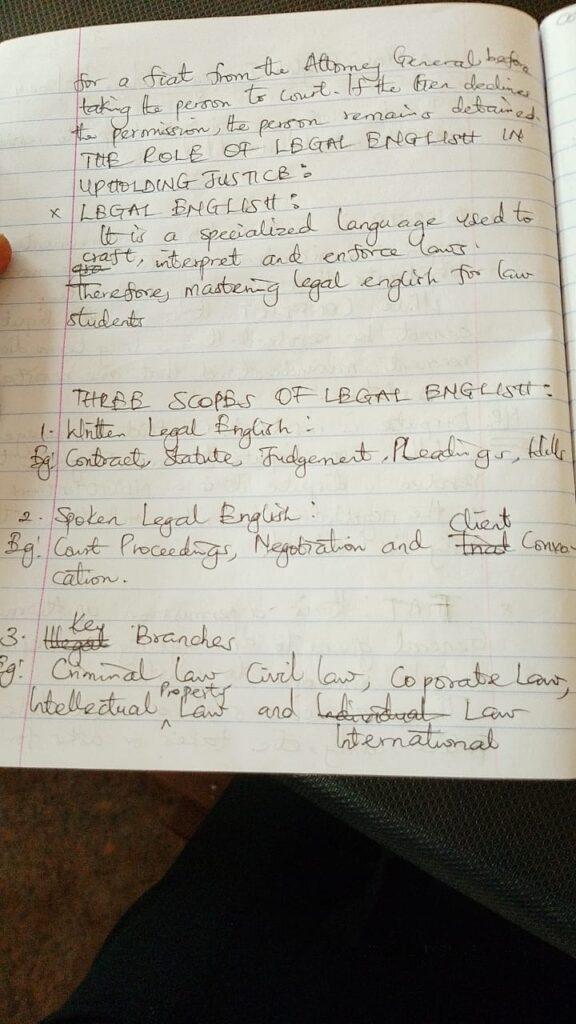 for a fiat from the Attorney General before
taking the person to court. If the Gen declines
the permission, the person remains detained.
THE ROLE OF LEGAL ENGLISH IN
UPHOLDING JUSTICE:
x LEGAL ENGLISH:
It is a specialized language used to
craft, interpret and enforce laws.
Therefore, mastering legal english for law
students
THREE SCOPES OF LEGAL ENGLISH:
1. Written Legal English:
Eg: Contract, Statute, Judgement, Pleadings, Wills
2. Spoken Legal English:
Client
Eg: Court Proceedings, Negotiation and Trial
cation.
Key
3. Illegal Branches
Eg: Criminal law Civil law, Coporate Law,
Property
Intellectual Law and Individual Law
International